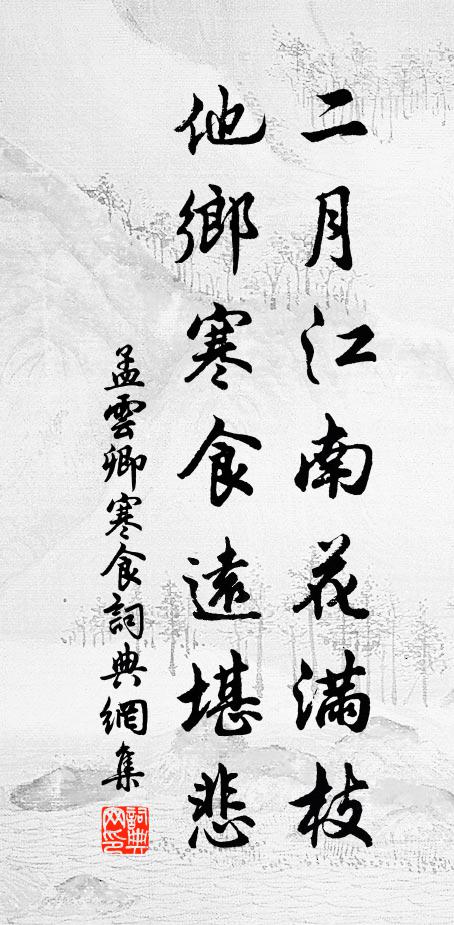 二月江南花滿枝
他鄉寒食遠堪悲
孟雲卿寒食詞典網集
詞典網印